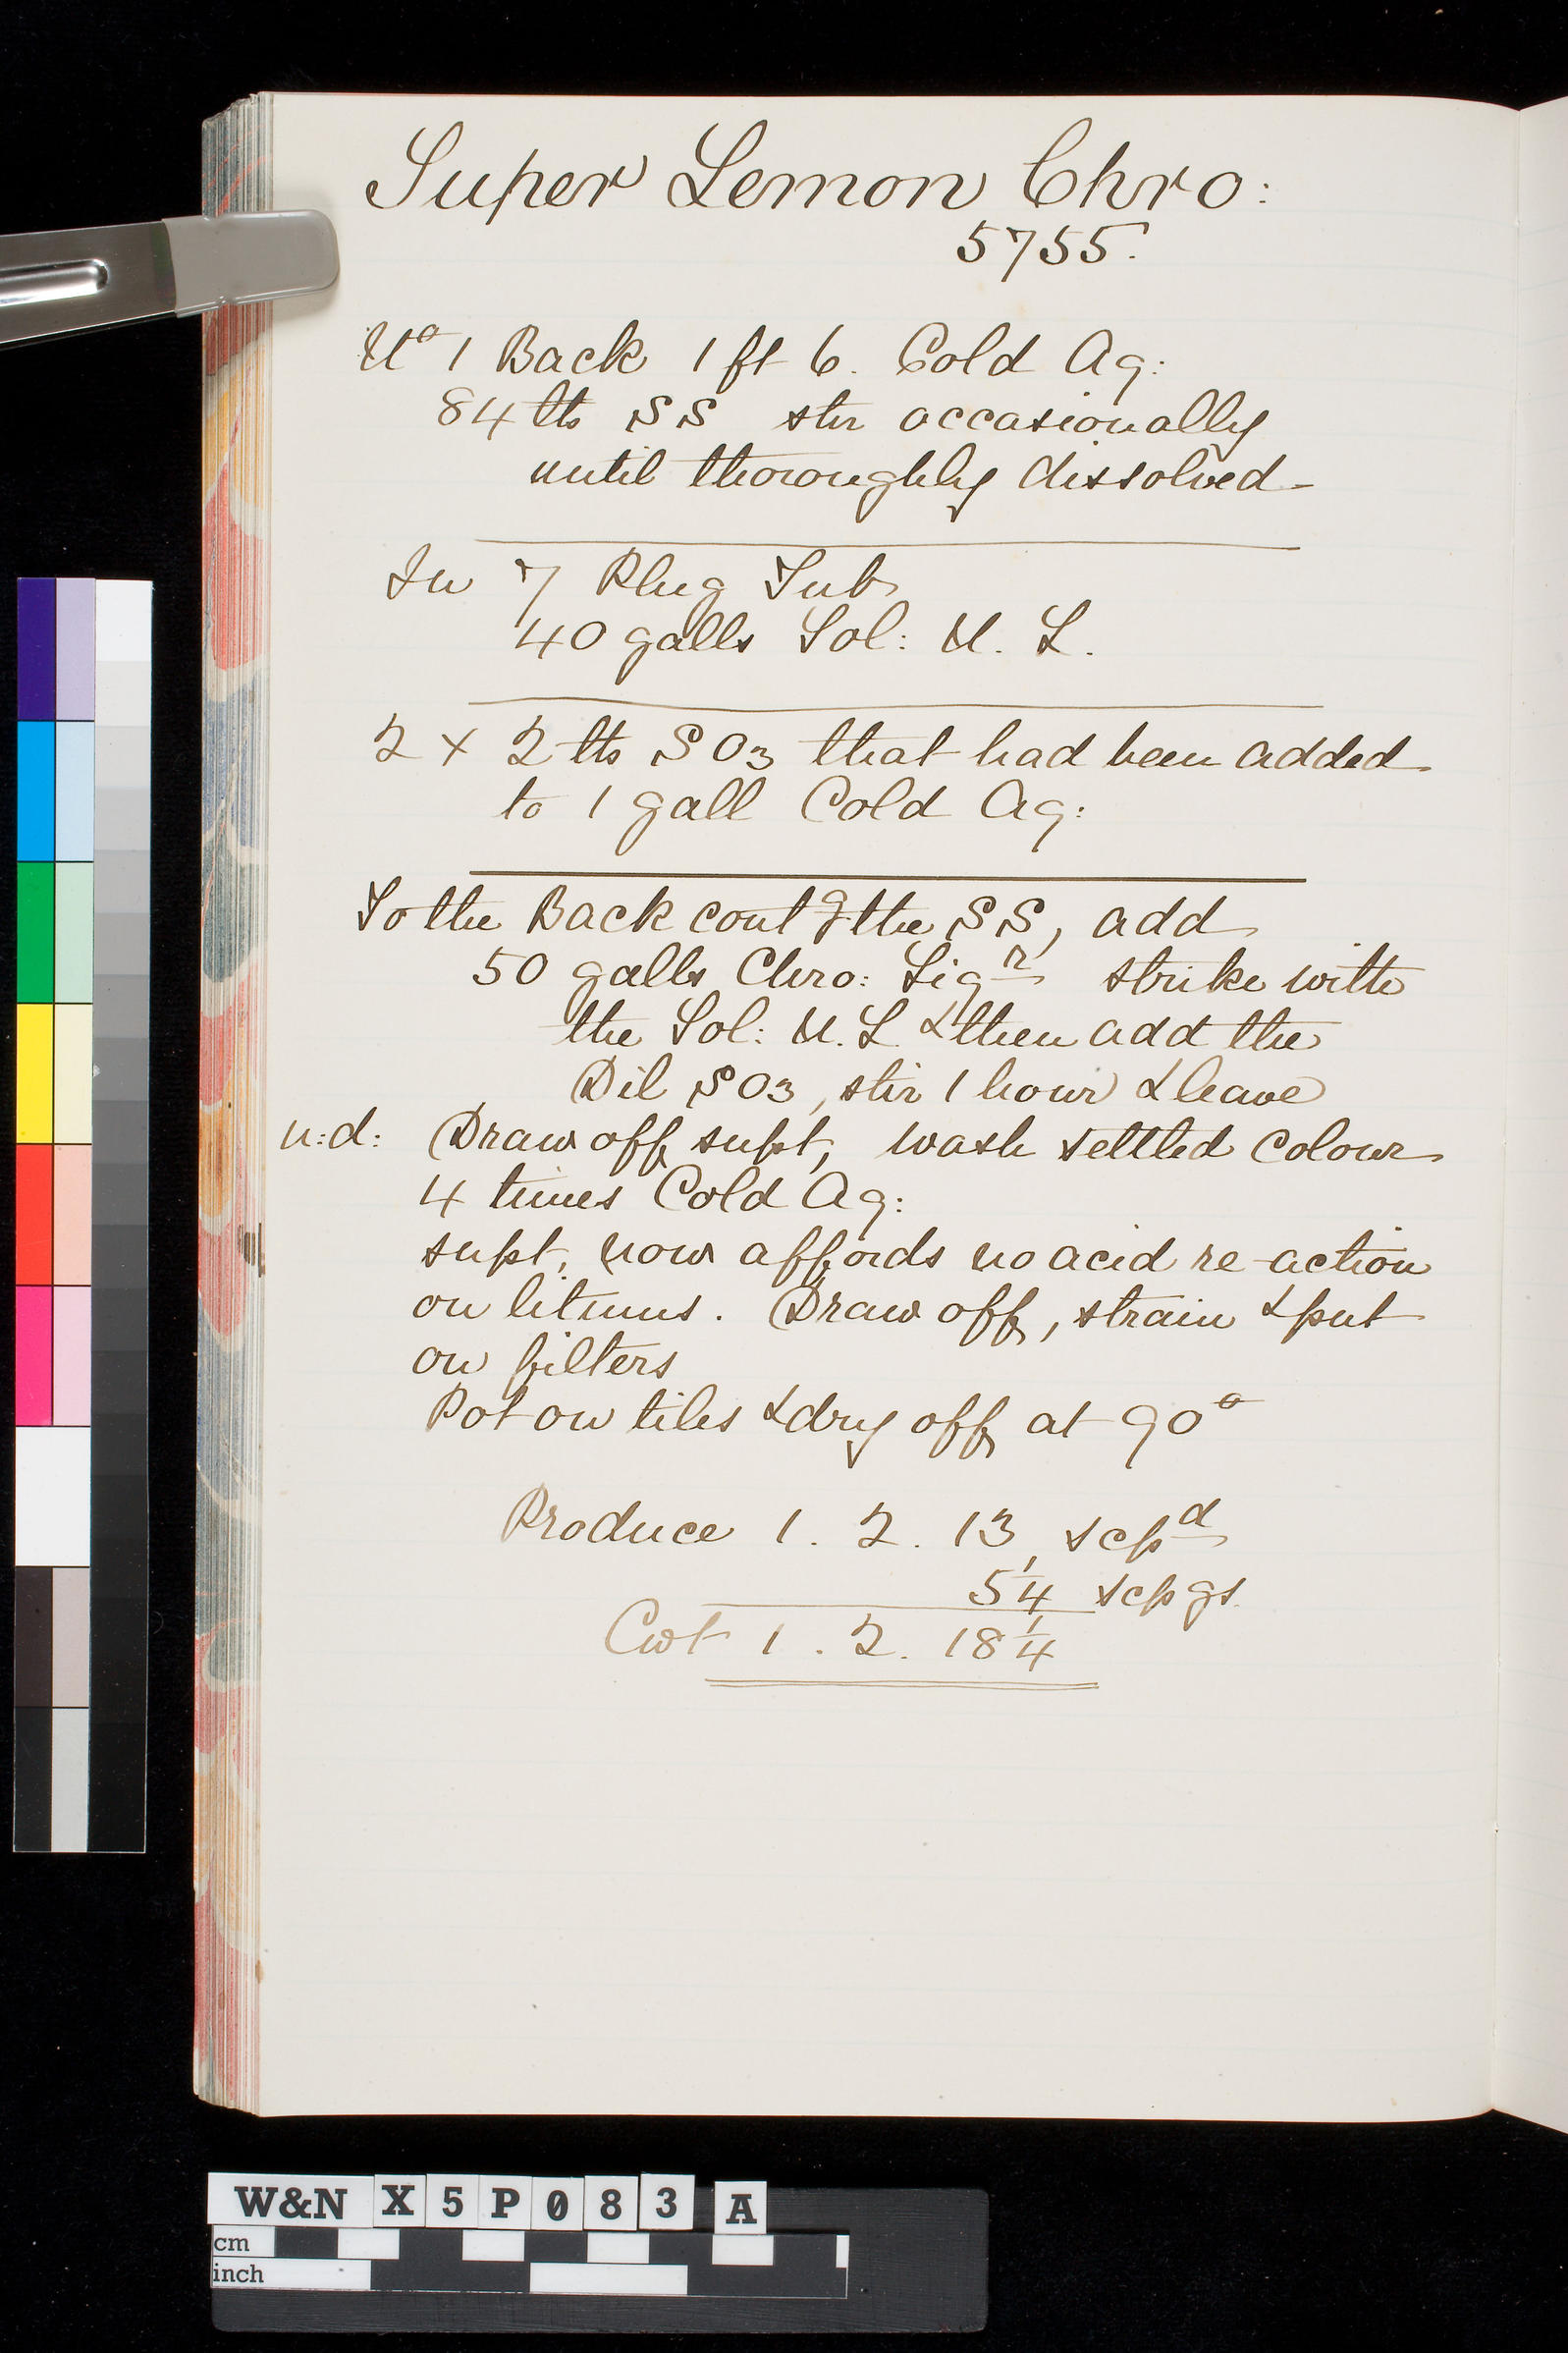 Super Lemon Chro:
5755.
No 1 Back 1 ft 6. Cold Aq:
84 lbs SS stir occasionally
until thoroughly dissolved
In 7 Plug Tub
40 galls Sol: N. L.
2 x 2 lbs SO3 that had been added
to 1 gall Cold Aq:
To the Back contg the SS, add
50 galls Chro: Liqr strike with
the Sol: N. L. & then add the
Dil SO3, stir 1 hour & leave
n:d: Draw off supt, wash settled colour
4 times Cold Aq:
supt, now affords no acid re-action
on litmus. Draw off, strain & put
on filters
Pot on tiles & dry off at 90°
Produce 1. 2. 13, scpd
5 1/4 scpgs
Cwt 1. 2. 18 1/4
W&N X 5 P 0 8 3 A
cm
inch